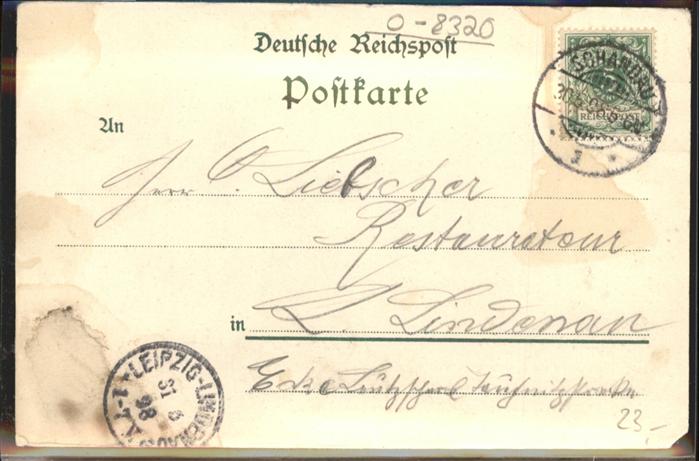 O-8320
Deutsche Reichspost
Postkarte
SCHANDAU
REICHSPOST
An
Herrn O. Liebscher
Restaurateur
in L. Lindenau
Ecke
LEIPZIG-LINDENAU
31 5
98
23.-